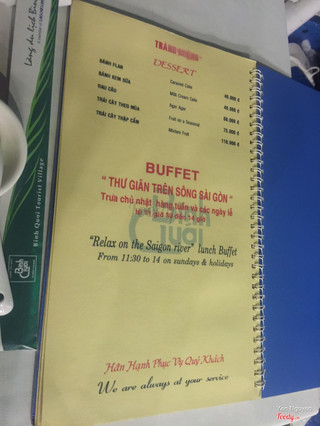 TRÁNG MIỆNG
DESSERT
BÁNH FLAN Caramel Cake 40.000 đ
BÁNH KEM SỮA Milk Cream Cake 45.000 đ
RAU CÂU Agar Agar
TRÁI CÂY THEO MÙA Fruit on a Seasonal
TRÁI CÂY THẬP CẨM Mixture Fruit 110.000 đ
BUFFET
" THƯ GIÃN TRÊN SÔNG SÀI GÒN "
Trưa chủ nhật hàng tuần và các ngày lễ
từ 11 giờ 30 đến 14 giờ
"Relax on the Saigon river" lunch Buffet
From 11:30 to 14 on sundays & holidays
Hân Hạnh Phục Vụ Quý Khách
We are always at your service
Làng du lịch Bình
Binh Quoi Tourist Village
Bình Quới
foody.vn